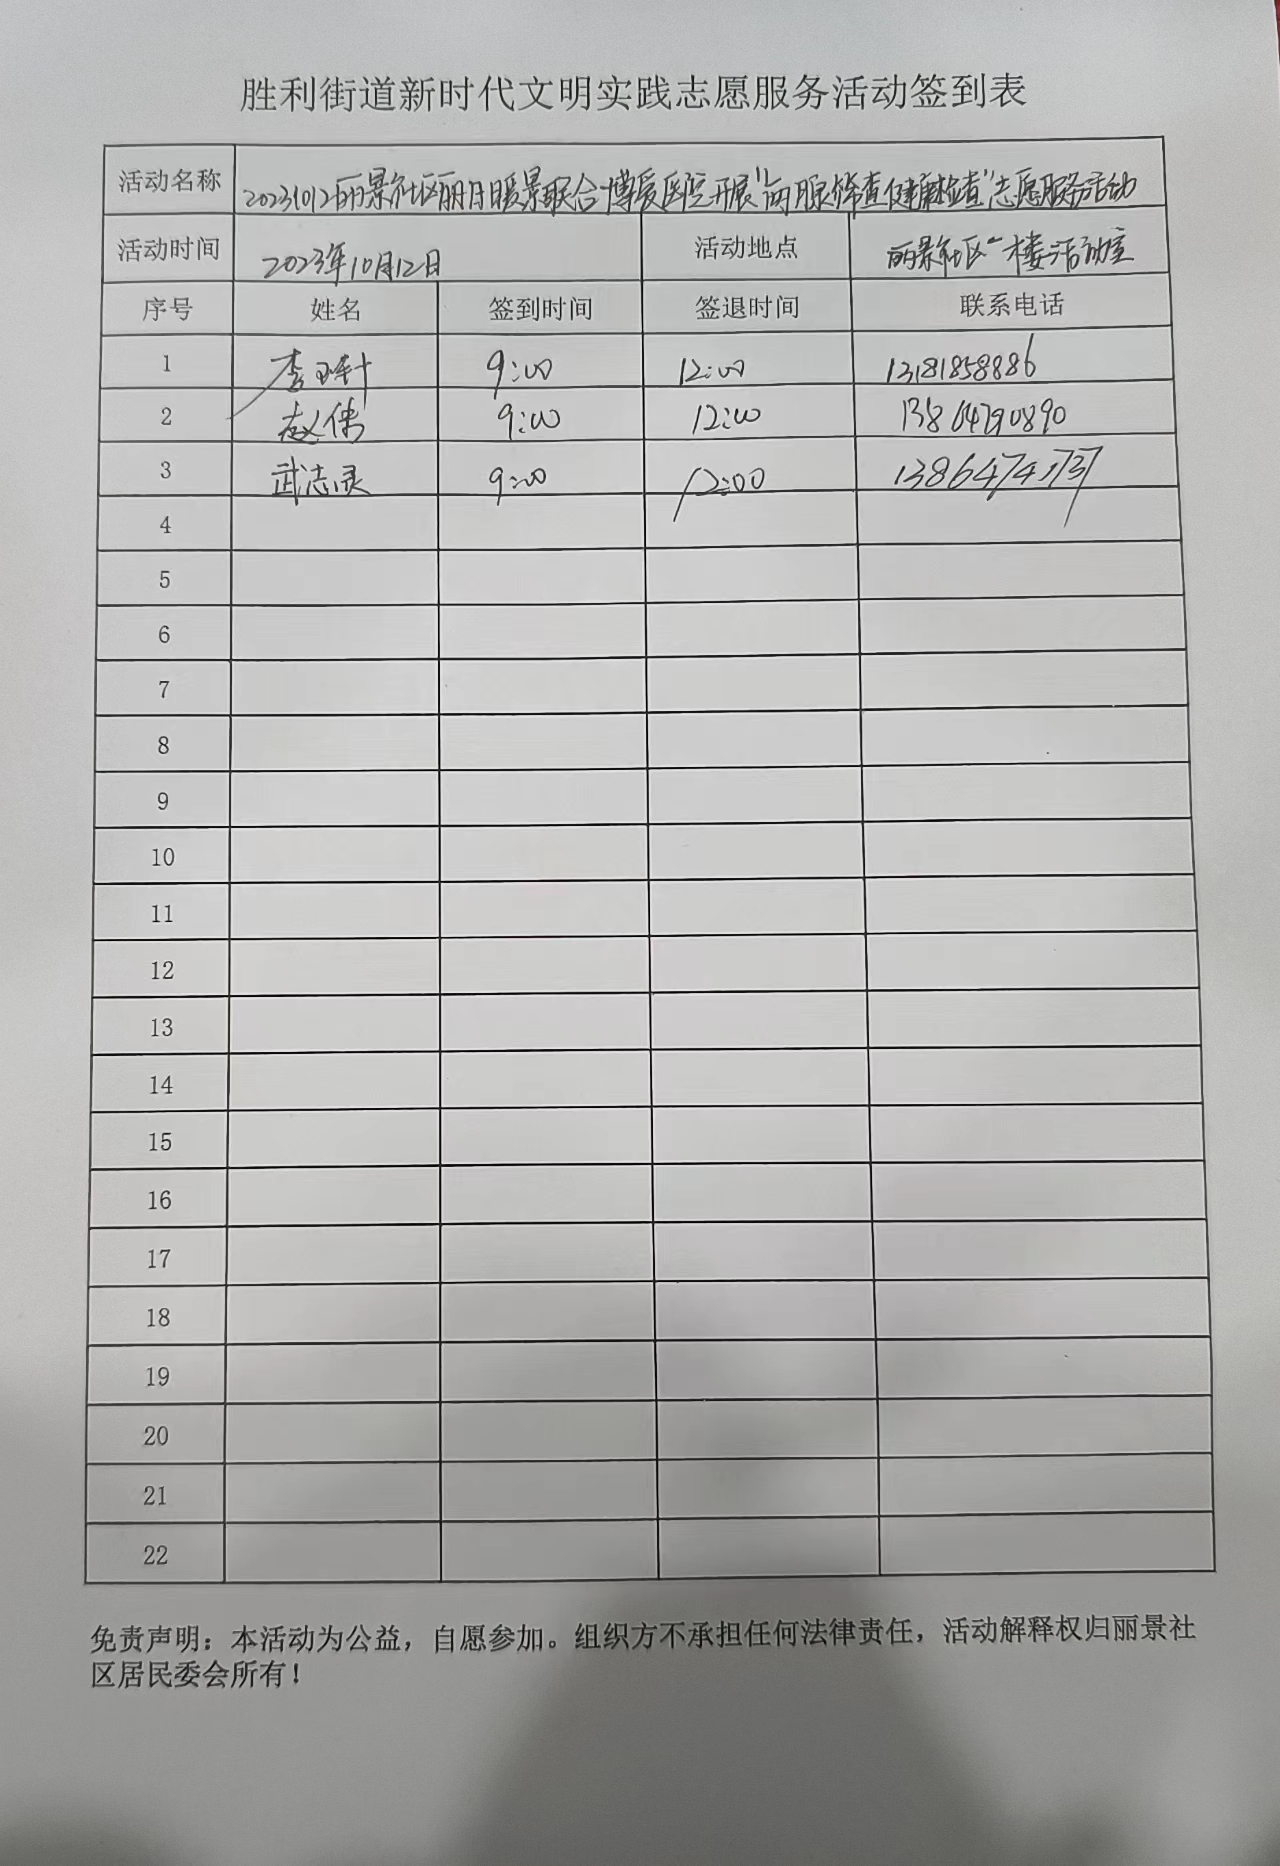 胜利街道新时代文明实践志愿服务活动签到表
活动名称 20231012丽景社区丽日暖景联合博爱医院开展"两腺筛查健康检查"志愿服务活动
活动时间 2023年10月12日 活动地点 丽景社区一楼活动室
序号 姓名 签到时间 签退时间 联系电话
1 李 9:00 12:00 13181858886
2 赵伟 9:00 12:00 13864790890
3 武志灵 9:00 12:00
4
5
6
7
8
9
10
11
12
13
14
15
16
17
18
19
20
21
22
免责声明：本活动为公益，自愿参加。组织方不承担任何法律责任，活动解释权归丽景社
区居民委会所有！